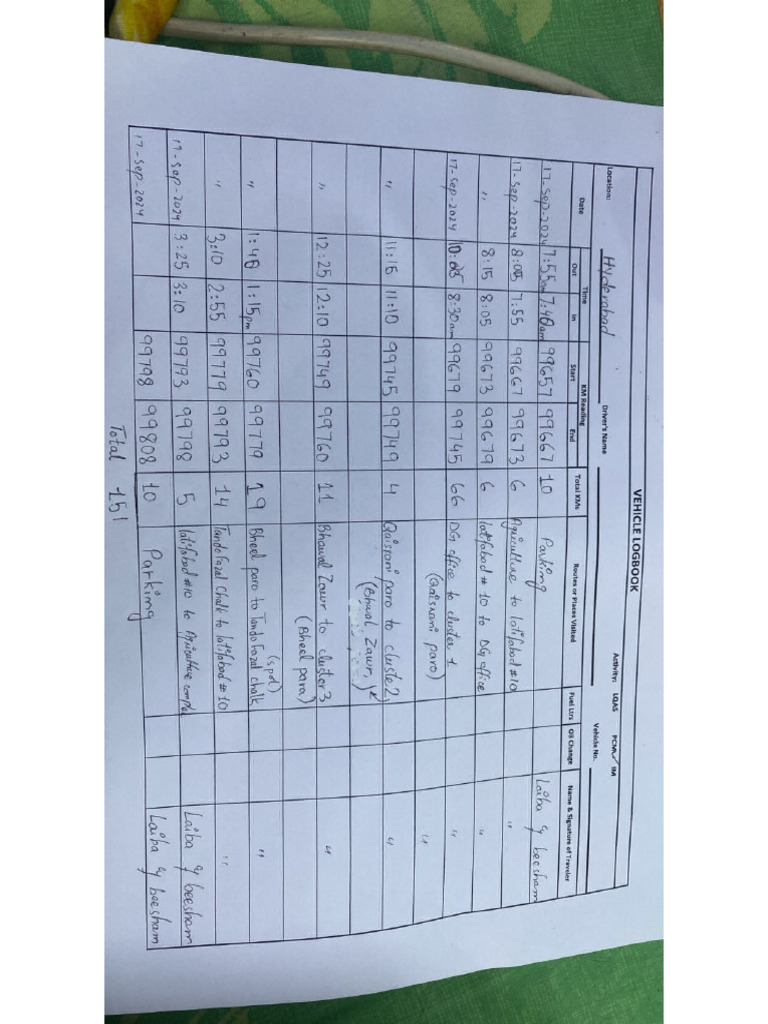 VEHICLE LOGBOOK
Activity: LQAS PCM IM
Location: Hyderabad Driver's Name Vehicle No.
Date Time KM Reading Total KMs Routes or Places Visited Fuel Ltrs Oil Change Name & Signature of Traveler
Out In Start End
17-sep-2024 7:55am 7:40am 99657 99667 10 Parking Laiba & beesham
17-sep-2024 8:05 7:55 99667 99673 6 Agriculture to latifabad #10 "
" 8:15 8:05 99673 99679 6 latifabad # 10 to DG office "
17-sep-2024 10:05 8:30am 99679 99745 66 DG office to cluster 1 "
(Qaisrani paro) "
" 11:15 11:10 99745 99749 4 Qaisrani paro to cluste2 "
(Bhwal Zawr)
" 12:25 12:10 99749 99760 11 Bhawal Zawr to cluster3 "
(Bheel para)
" 1:40 1:15pm 99760 99779 19 Bheel paro to Tando Fazal chalk "
(spot)
" 3:10 2:55 99779 99793 14 Tando Fazal Chalk to latifabad #10 "
17-sep-2024 3:25 3:10 99793 99798 5 latifabad #10 to Agriculture comple Laiba & beesham
17-sep-2024 99798 99808 10 Parking Laiba & beesham
Total 151